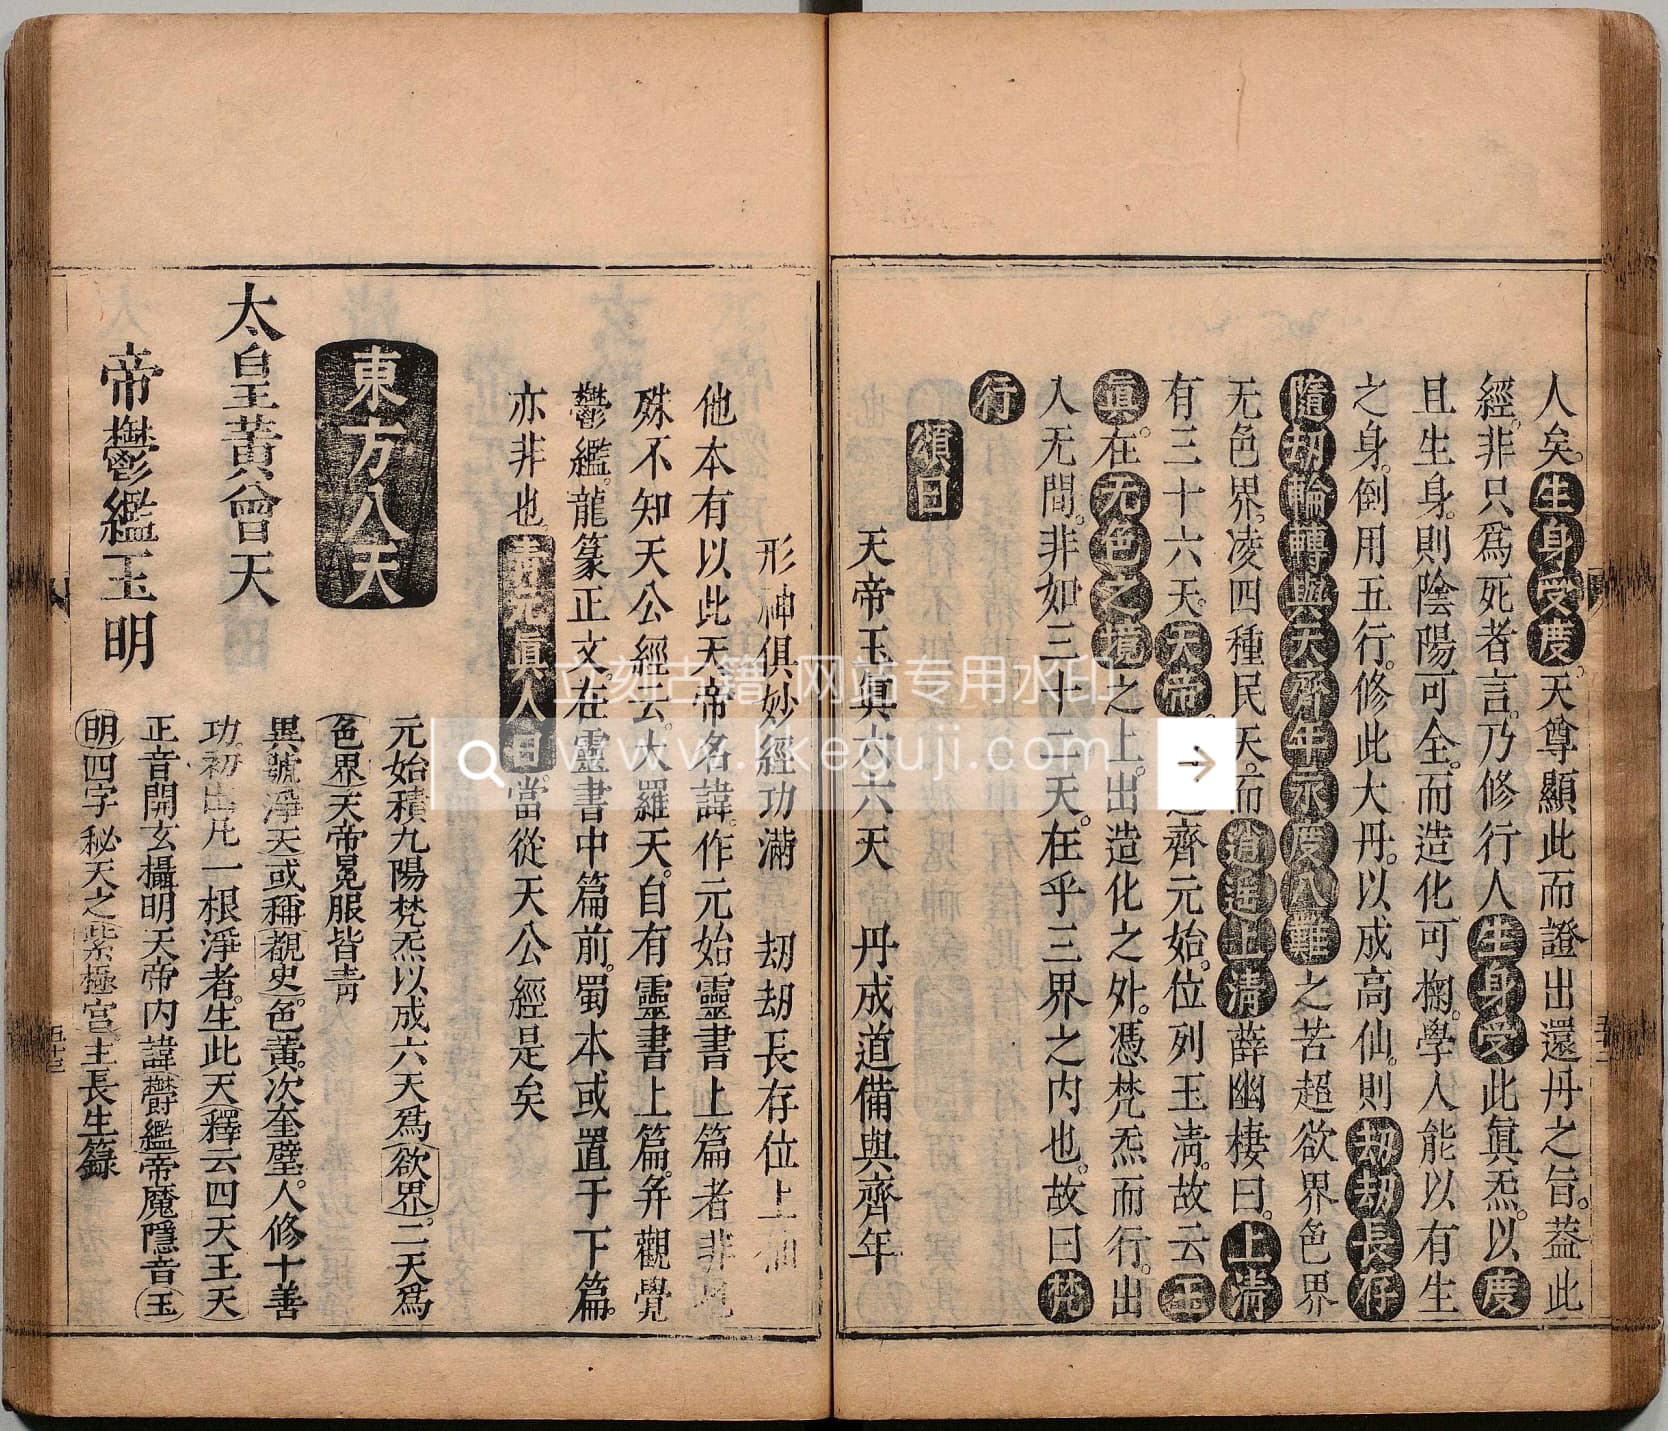 人矣。生身受度。天尊顯此而證出還丹之旨。葢此
經。非只爲死者言。乃修行人生身受此眞炁。以度
且生身。則陰陽可全。而造化可掬。學人能以有生
之身。倒用五行。修此大丹。以成高仙。則劫劫長存
隨劫輪轉與天齊年永度八難之苦超欲界色界
无色界。凌四種民天。而逍遙上清薛幽棲曰。上清
有三十六天。天帝。齊元始。位列玉清。故云玉
眞在。无色之境之上。出造化之外。憑梵炁而行。出
入无間。非如三十二天。在乎三界之内也。故曰梵
行
頌曰
天帝玉眞六六天　丹成道備與齊年
形神俱妙經功滿　劫劫長存位上仙
他本有以此天帝名諱。作元始靈書上篇者非
殊不知天公經云。大羅天。自有靈書上篇。并觀覺
鬱鑑。龍篆正文。在靈書中篇前。蜀本或置于下篇。
亦非也。青元眞人自。當從天公經是矣
東方八天
太皇黃曾天
元始積九陽梵炁以成六天爲欲界。二天爲
色界天帝冕服皆青
帝鬱鑑玉明
異號淨天或稱覩史。色黃。次奎璧。人修十善
功。初出凡一根淨者。生此天釋云四天王天
正音開玄攝明天帝内諱鬱鑑帝魔隱音玉
明四字秘天之紫極宮。主長生籙
五十三
立刻古籍 网站专用水印
www.lkeguji.com